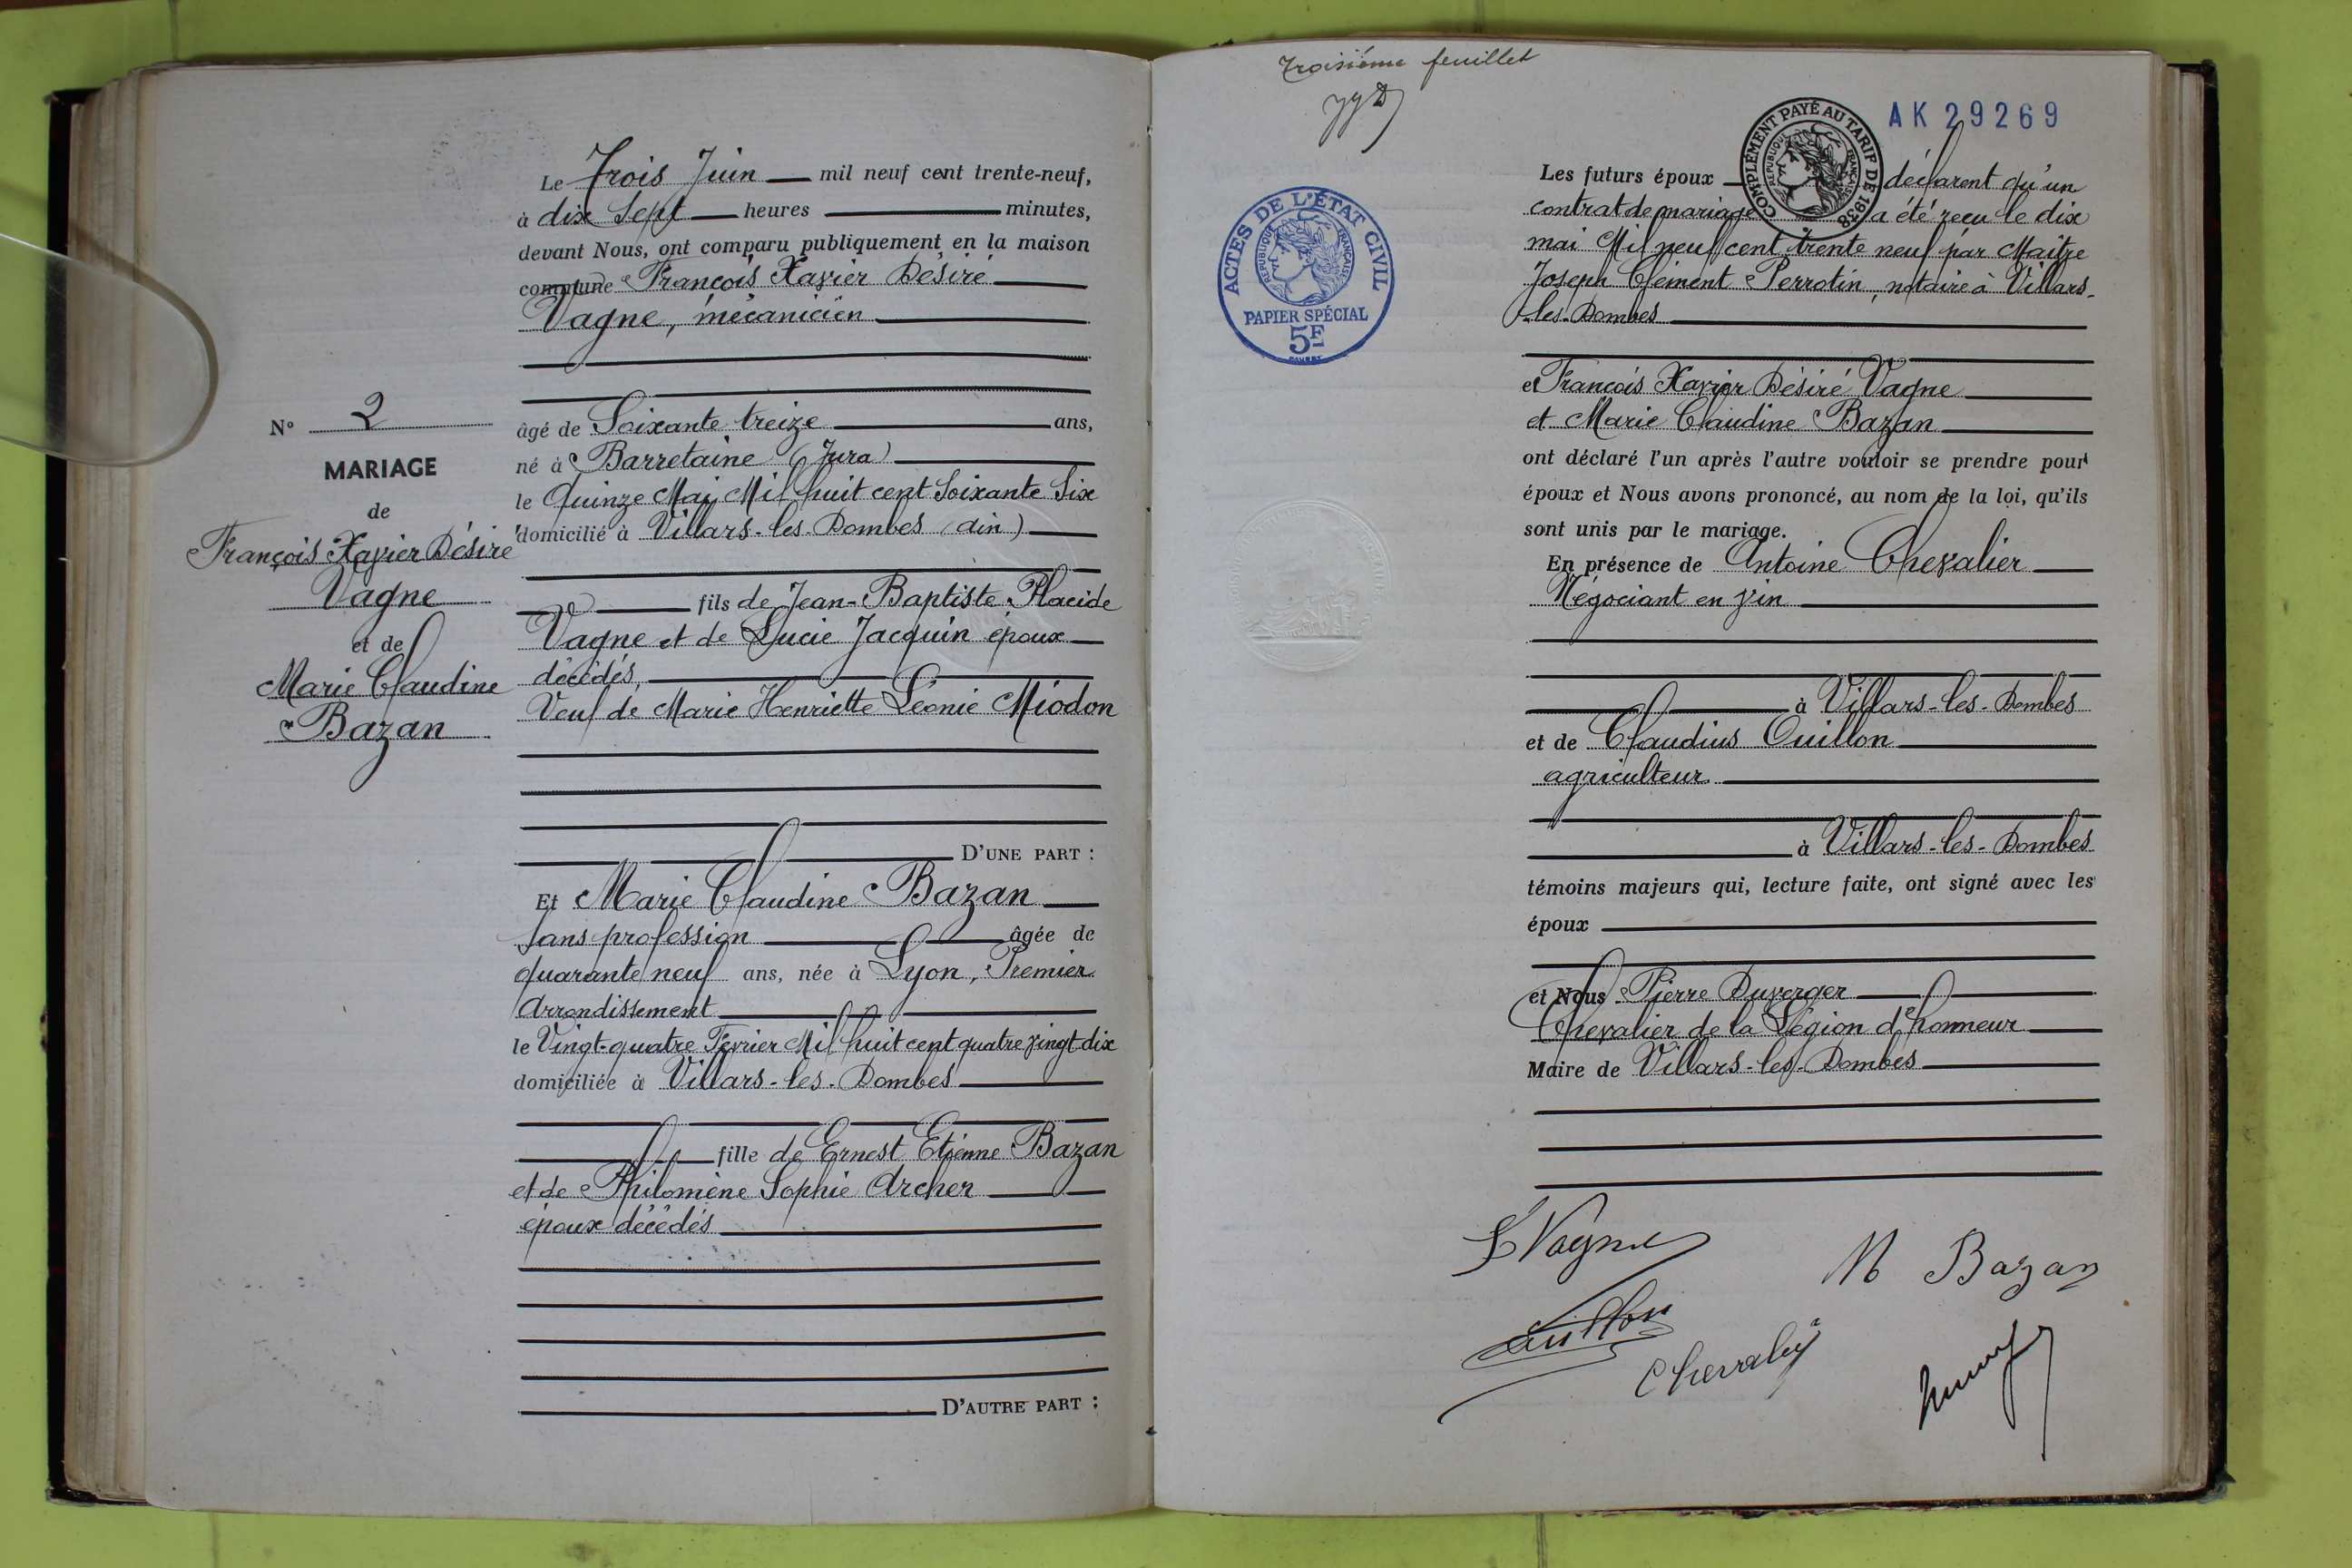 N° 2
MARIAGE
de
François Xavier Désiré
Vagne
et de
Marie Claudine
Bazan
Le Trois Juin mil neuf cent trente-neuf,
à dix sept heures minutes,
devant Nous, ont comparu publiquement en la maison
commune François Xavier Désiré
Vagne, mécanicien
âgé de Soixante treize ans,
né à Barretaine (Jura)
le Quinze Mai Mil huit cent Soixante Six
domicilié à Villars-les-Dombes (Ain)
fils de Jean-Baptiste Placide
Vagne et de Lucie Jacquin époux
décédés,
Veuf de Marie Henriette Léonie Miodon
D'UNE PART :
Et Marie Claudine Bazan
Sans profession âgée de
quarante neuf ans, née à Lyon, Premier
Arrondissement
le Vingt-quatre Février Mil huit cent quatre vingt-dix
domiciliée à Villars-les-Dombes
fille de Ernest Etienne Bazan
et de Philomène Sophie Archer
époux décédés
D'AUTRE PART :
Troisième feuillet
AK 29269
COMPLÉMENT PAYÉ AU TARIF DE 1938
RÉPUBLIQUE FRANÇAISE
ACTES DE L'ÉTAT CIVIL
RÉPUBLIQUE FRANÇAISE
PAPIER SPÉCIAL
5F
Les futurs époux déclarent qu'un
contrat de mariage a été reçu le dix
mai Mil neuf cent trente neuf par Maître
Joseph Clément Perrotin, notaire à Villars-
les-Dombes
et François Xavier Désiré Vagne
et Marie Claudine Bazan
ont déclaré l'un après l'autre vouloir se prendre pour
époux et Nous avons prononcé, au nom de la loi, qu'ils
sont unis par le mariage.
En présence de Antoine Chevalier
Négociant en vin
à Villars-les-Dombes
et de Claudius Ouillon
agriculteur
à Villars-les-Dombes
témoins majeurs qui, lecture faite, ont signé avec les
époux
et Nous Pierre Duverger
Chevalier de la Légion d'honneur
Maire de Villars-les-Dombes
Vagne
M Bazan
Ouillon
Chevalier